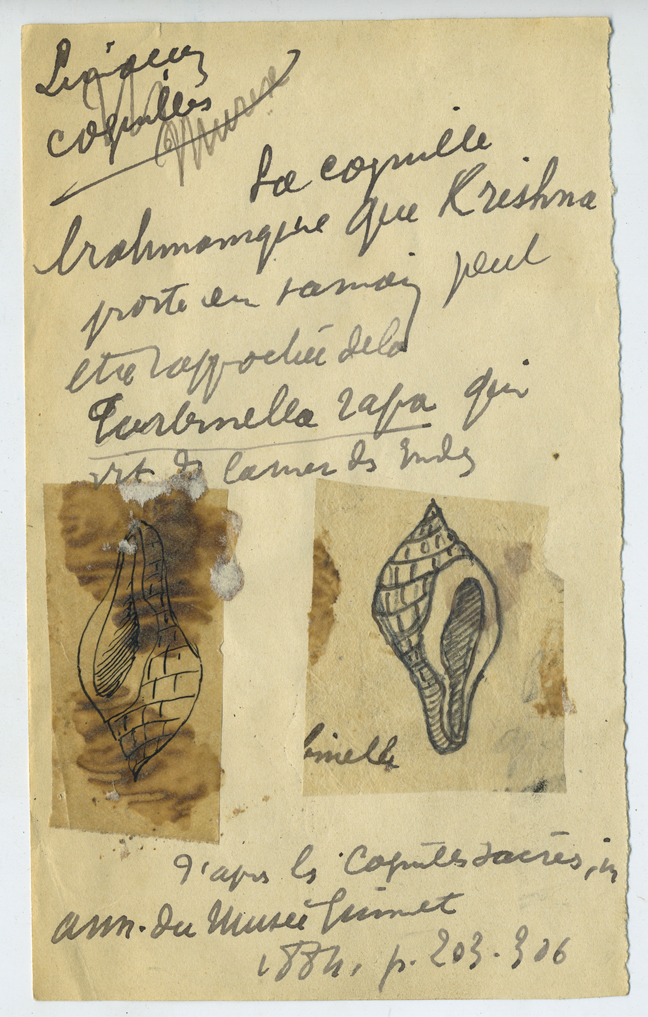 coquilles
Murex
La coquille
brahmanique que Krishna
porte en sa main peut
etre rapprochée de la
Turbinella rapa qui
vit ds la mer des Indes
binella
D'après les coquilles sacrées, in
ann. du Musée Guimet
1884, p. 203-306